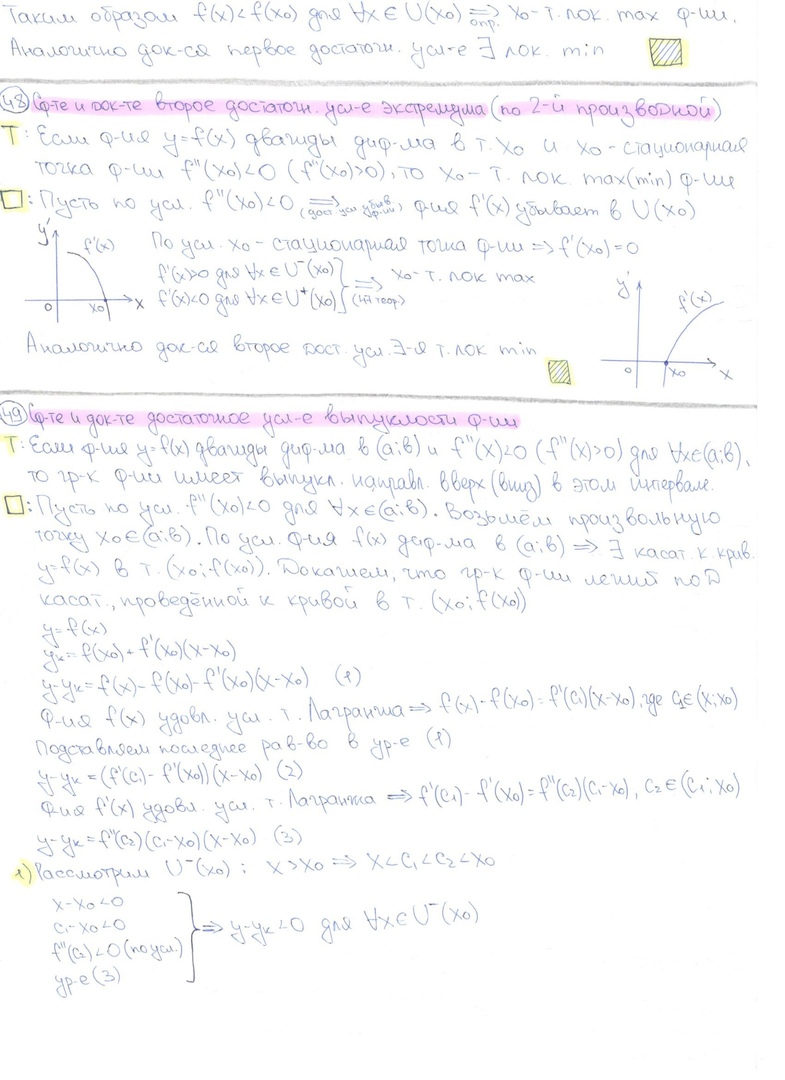 Таким образом f(x)<f(x₀) для ∀x∈U(x₀) ⟹ опр. x₀-т. лок. max ф-ии.
Аналогично док-ся первое достаточн. усл-е ∃ лок. min
48 Сф-те и док-те второе достаточн. усл-е экстремума (по 2-й производной)
Т: Если ф-ия y=f(x) дважды диф-ма в т. x₀ и x₀-стационарная
точка ф-ии f''(x₀)<0 (f''(x₀)>0), то x₀-т. лок. max(min) ф-ии
□: Пусть по усл. f''(x₀)<0 ⟹ (дост. усл. убыв. ф-ии) ф-ия f'(x) убывает в U(x₀)
По усл. x₀-стационарная точка ф-ии ⟹ f'(x₀)=0
f'(x)>0 для ∀x∈U⁻(x₀)
f'(x)<0 для ∀x∈U⁺(x₀) } ⟹ (47 теор.) x₀-т. лок max
y' f'(x) 0 x₀ x
y' f'(x) 0 x₀ x
Аналогично док-ся второе дост. усл. ∃-я т. лок min
49 Сф-те и док-те достаточное усл-е выпуклости ф-ии
Т: Если ф-ия y=f(x) дважды диф-ма в (a;b) и f''(x)<0 (f''(x)>0) для ∀x∈(a;b),
то гр-к ф-ии имеет выпукл. направл. вверх (вниз) в этом интервале.
□: Пусть по усл. f''(x₀)<0 для ∀x∈(a;b). Возьмём произвольную
точку x₀∈(a;b). По усл. ф-ия f(x) диф-ма в (a;b) ⟹ ∃ касат. к крив.
y=f(x) в т. (x₀;f(x₀)). Докажем, что гр-к ф-ии лежит под
касат., проведённой к кривой в т. (x₀;f(x₀))
y=f(x)
yₖ=f(x₀)+f'(x₀)(x-x₀)
y-yₖ=f(x)-f(x₀)-f'(x₀)(x-x₀) (1)
Ф-ия f(x) удовл. усл. т. Лагранжа ⟹ f(x)-f(x₀)=f'(c₁)(x-x₀), где c₁∈(x;x₀)
Подставляем последнее рав-во в ур-е (1)
y-yₖ=(f'(c₁)-f'(x₀))(x-x₀) (2)
Ф-ия f'(x) удовл. усл. т. Лагранжа ⟹ f'(c₁)-f'(x₀)=f''(c₂)(c₁-x₀), c₂∈(c₁;x₀)
y-yₖ=f''(c₂)(c₁-x₀)(x-x₀) (3)
1) Рассмотрим U⁻(x₀): x>x₀ ⟹ x<c₁<c₂<x₀
x-x₀<0
c₁-x₀<0
f''(c₂)<0 (по усл.)
ур-е (3) } ⟹ y-yₖ<0 для ∀x∈U⁻(x₀)